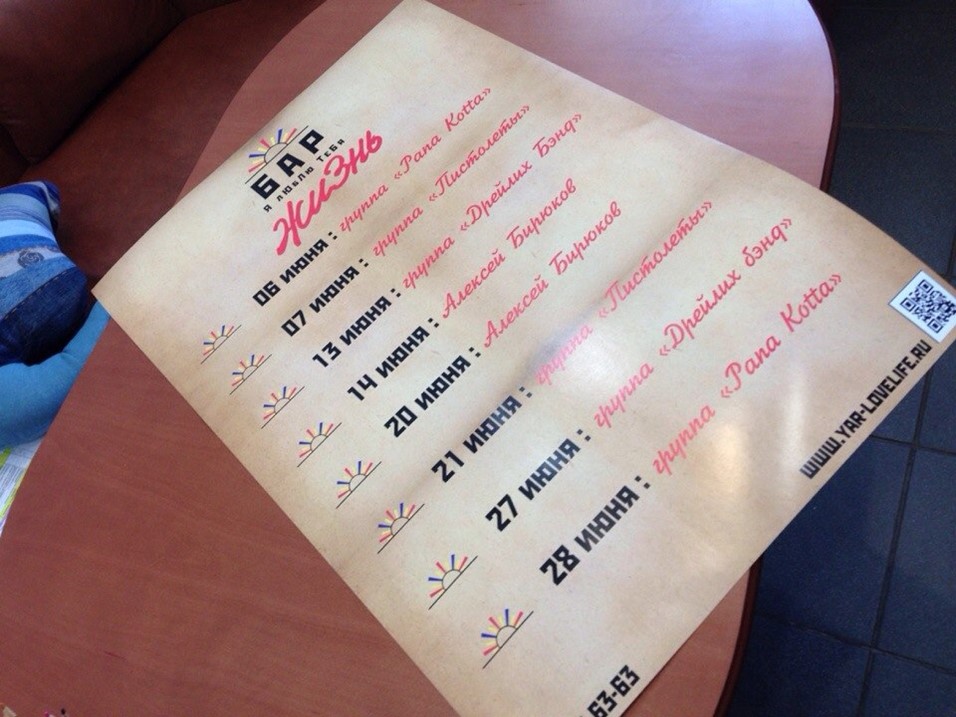 БАР
Я ЛЮБЛЮ ТЕБЯ
ЖИЗНЬ
06 ИЮНЯ : группа «Papa Kotta»
07 ИЮНЯ : группа «Пистолеты»
13 ИЮНЯ : группа «Дрейлих Бэнд»
14 ИЮНЯ : Алексей Бирюков
20 ИЮНЯ : Алексей Бирюков
21 ИЮНЯ : группа «Пистолеты»
27 ИЮНЯ : группа «Дрейлих бэнд»
28 ИЮНЯ : группа «Papa Kotta»
63-63
WWW.YAR-LOVELIFE.RU